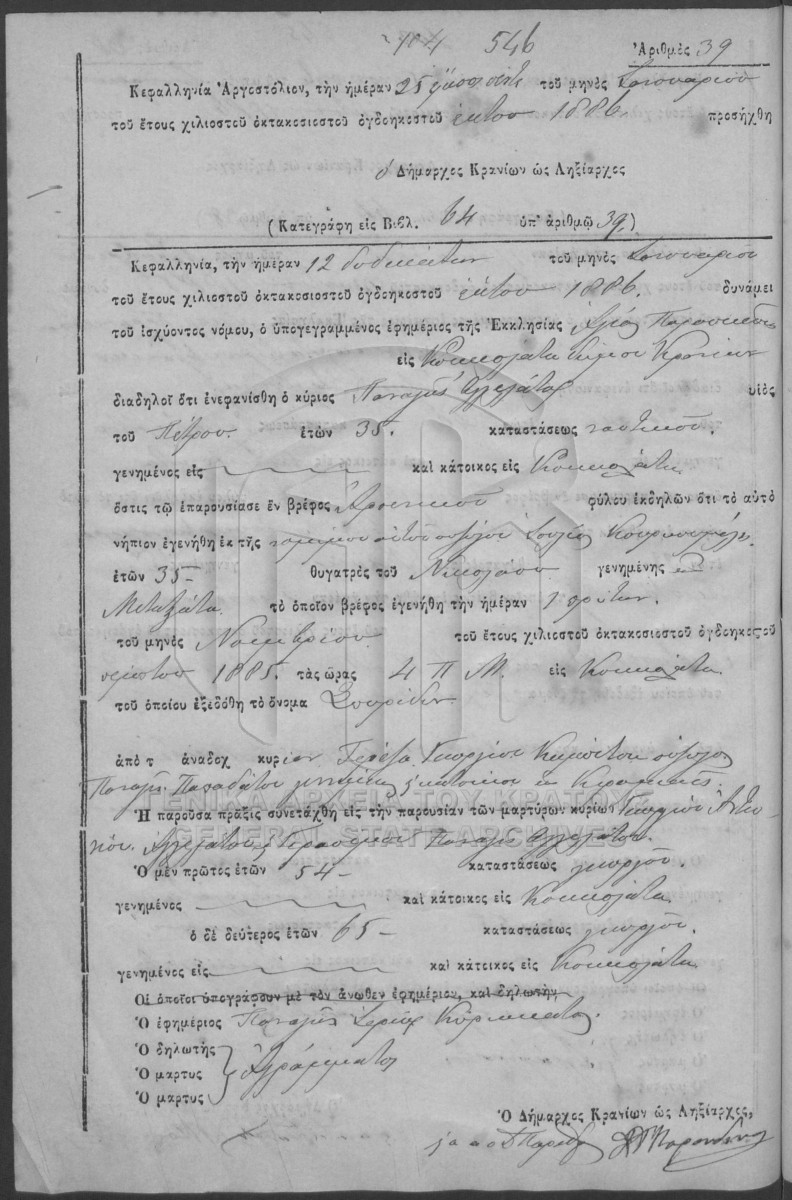 104 546 Ἀριθμὸς 39
Κεφαλληνία Ἀργοστόλιον, τὴν ἡμέραν 25 τοῦ μηνὸς Ἰανουαρίου
τοῦ ἔτους χιλιοστοῦ ὀκτακοσιοστοῦ ὀγδοηκοστοῦ ἕκτου 1886. προσήχθη
ὁ Δήμαρχος Κρανίων ὡς Ληξίαρχος
(Κατεγράφη εἰς Βιβλ. 64 ὑπ' ἀριθμῷ 39.)
Κεφαλληνία, τὴν ἡμέραν 12 δωδεκάτην τοῦ μηνὸς Ἰανουαρίου
τοῦ ἔτους χιλιοστοῦ ὀκτακοσιοστοῦ ὀγδοηκοστοῦ ἕκτου 1886. δυνάμει
τοῦ ἰσχύοντος νόμου, ὁ ὑπογεγραμμένος ἐφημέριος τῆς Ἐκκλησίας Ἁγίας Παρασκευῆς
εἰς Κοκκολάτα Δήμου Κρανίων
διαδηλοῖ ὅτι ἐνεφανίσθη ὁ κύριος Παναγῆς Ἀγγελάτος υἱὸς
τοῦ Πέτρου. ἐτῶν 35. καταστάσεως ναυτικοῦ.
γενημένος εἰς καὶ κάτοικος εἰς Κοκκολάτα
ὅστις τῷ ἐπαρουσίασε ἓν βρέφος Ἀρσενικοῦ φύλου ἐκδηλῶν ὅτι τὸ αὐτὸ
νήπιον ἐγενήθη ἐκ τῆς νομίμου αὐτοῦ συζύγου
ἐτῶν 35 – θυγατρὸς τοῦ Νικολάου γενημένης εἰς
Μεταξάτα. τὸ ὁποῖον βρέφος ἐγενήθη τὴν ἡμέραν 1 πρώτην.
τοῦ μηνὸς Νοεμβρίου τοῦ ἔτους χιλιοστοῦ ὀκτακοσιοστοῦ ὀγδοηκοστοῦ
πέμπτου 1885. τὰς ὥρας 4 Π Μ. εἰς Κοκκολάτα.
τοῦ ὁποίου ἐξεδόθη τὸ ὄνομα Σπυρίδων
ἀπὸ τ ἀναδοχ κυρίαν Γεωργίου συζύγου
Παναγῆ
ΓΕΝΙΚΑ ΑΡΧΕΙΑ ΤΟΥ ΚΡΑΤΟΥΣ
Ἡ παροῦσα πρᾶξις συνετάχθη εἰς τὴν παρουσίαν τῶν μαρτύρων κυρίων Γεωργίου Ἀντω-
GENERAL STATE ARCHIVES
νίου. Ἀγγελάτου, Γερασίμου Παναγῆ Ἀγγελάτου.
Ὁ μὲν πρῶτος ἐτῶν 54 – καταστάσεως γεωργοῦ.
γενημένος καὶ κάτοικος εἰς Κοκκολάτα
ὁ δὲ δεύτερος ἐτῶν 65 – καταστάσεως γεωργοῦ.
γενημένος εἰς καὶ κάτοικος εἰς Κοκκολάτα
Οἱ ὁποῖοι ὑπογράφουν μὲ τὸν ἄνωθεν ἐφημέριον, καὶ δηλωτὴν,
Ὁ ἐφημέριος Παναγῆς
Ὁ δηλωτὴς
Ὁ μάρτυς Ἀγράμματοι
Ὁ μάρτυς
Ὁ Δήμαρχος Κρανίων ὡς Ληξίαρχος,